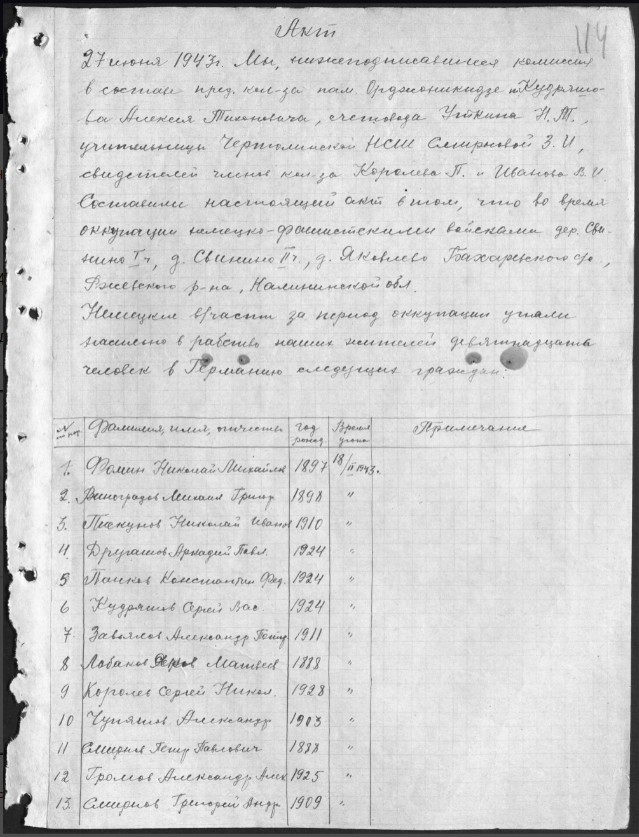 114
Акт
27 июня 1943г. Мы, нижеподписавшиеся комиссия
в составе пред. кол-за пам. Орджоникидзе Кудряшо-
ва Алексея Тихоновича, счетовода Уткина Н.М.,
учительницы Чертолинской НСШ Смирновой З.И,
свидетелей членов кол-за Королева П. и Иванова В.И.
Составили настоящий акт в том, что во время
оккупации немецко-фашистскими войсками дер. Сви-
нино Iг, д. Свинино IIг., д. Яковлево Бахаревского с/с,
Ржевского р-на, Калининской обл.
Немецкие власти за период оккупации угнали
насильно в рабство наших жителей девятнадцать
человек в Германию следующих граждан:
N Фамилия, имя, отчество Год рожд. Время угона Примечание
1. Фомин Николай Михайлов 1897 18/II 1943г.
2. Виноградов Михаил Григор 1898 "
3. Николай Иванов 1910 "
4 Аркадий Павл. 1924 "
5 Панков Константин Фед. 1924 "
6 Кудряшов Сергей Вас 1924 "
7. Завьялов Александр 1911 "
8 Лобанов Матвеев 1888 "
9 Королев Сергей Никол. 1928 "
10 Александр 1903 "
11 Смирнов Петр Павлович 1888 "
12 Громов Александр Алек 1925 "
13. Смирнов Григорий Андр 1909 "